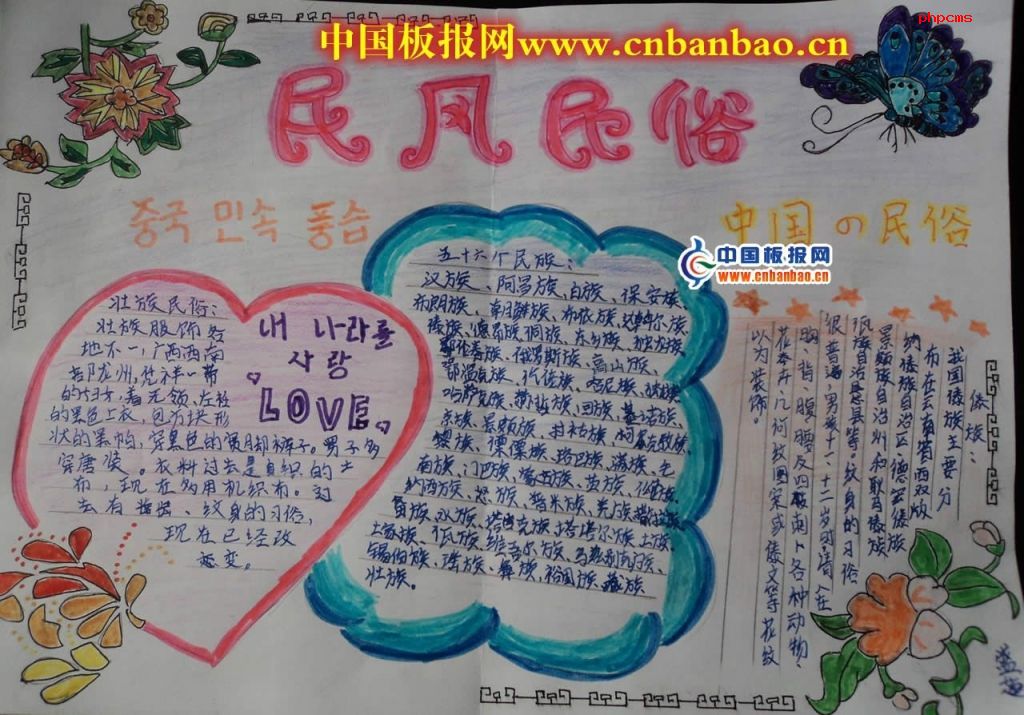 phpcms
中国板报网www.cnbanbao.cn
民风民俗
중국 민속 풍습
中国の民俗
中国板报网
www.cnbanbao.cn
壮族民俗：
壮族服饰各
地不一，广西西南
部龙州，凭祥一带
的妇女，着无领、左衽
的黑色上衣，包方块形
状的黑帕，穿黑色的宽月却裤子。男子多
穿唐装。衣料过去是自织的土
布，现在多用机织布。过
去有 纹身的习俗，
现在已经改
变。
내 나라를
사랑
LOVE
五十六个民族：
汉族、阿昌族、白族、保安族、
布朗族、朝鲜族、布依族、达斡尔族
傣族、德昂族、侗族、东乡族、独龙族
鄂伦春族、俄罗斯族、高山族、
鄂温克族、仡佬族、哈尼族、
哈萨克族、赫哲族、回族、基诺族、
京族、景颇族、拉祜族、柯尔克孜族、
黎族、傈僳族、珞巴族、满族、毛
南族、门巴族、蒙古族、苗族、仫佬族、
纳西族、怒族、普米族、羌族、撒拉族、
畲族、水族、塔吉克族、塔塔尔族、土族、
土家族、佤族、维吾尔族、乌孜别克族、
锡伯族、瑶族、彝族、裕固族、藏族
壮族。
傣族：
我国傣族主要分
布在云南省西双版
纳傣族自治区、德宏傣族
景颇族自治州和耿马傣族
佤族自治县县等，纹身的习俗
很普遍，男孩十一、十二岁时请人在
胸、背、腹、腰及四肢刺上各种动物、
花卉、几何纹图案或傣文等花纹
以为装饰。